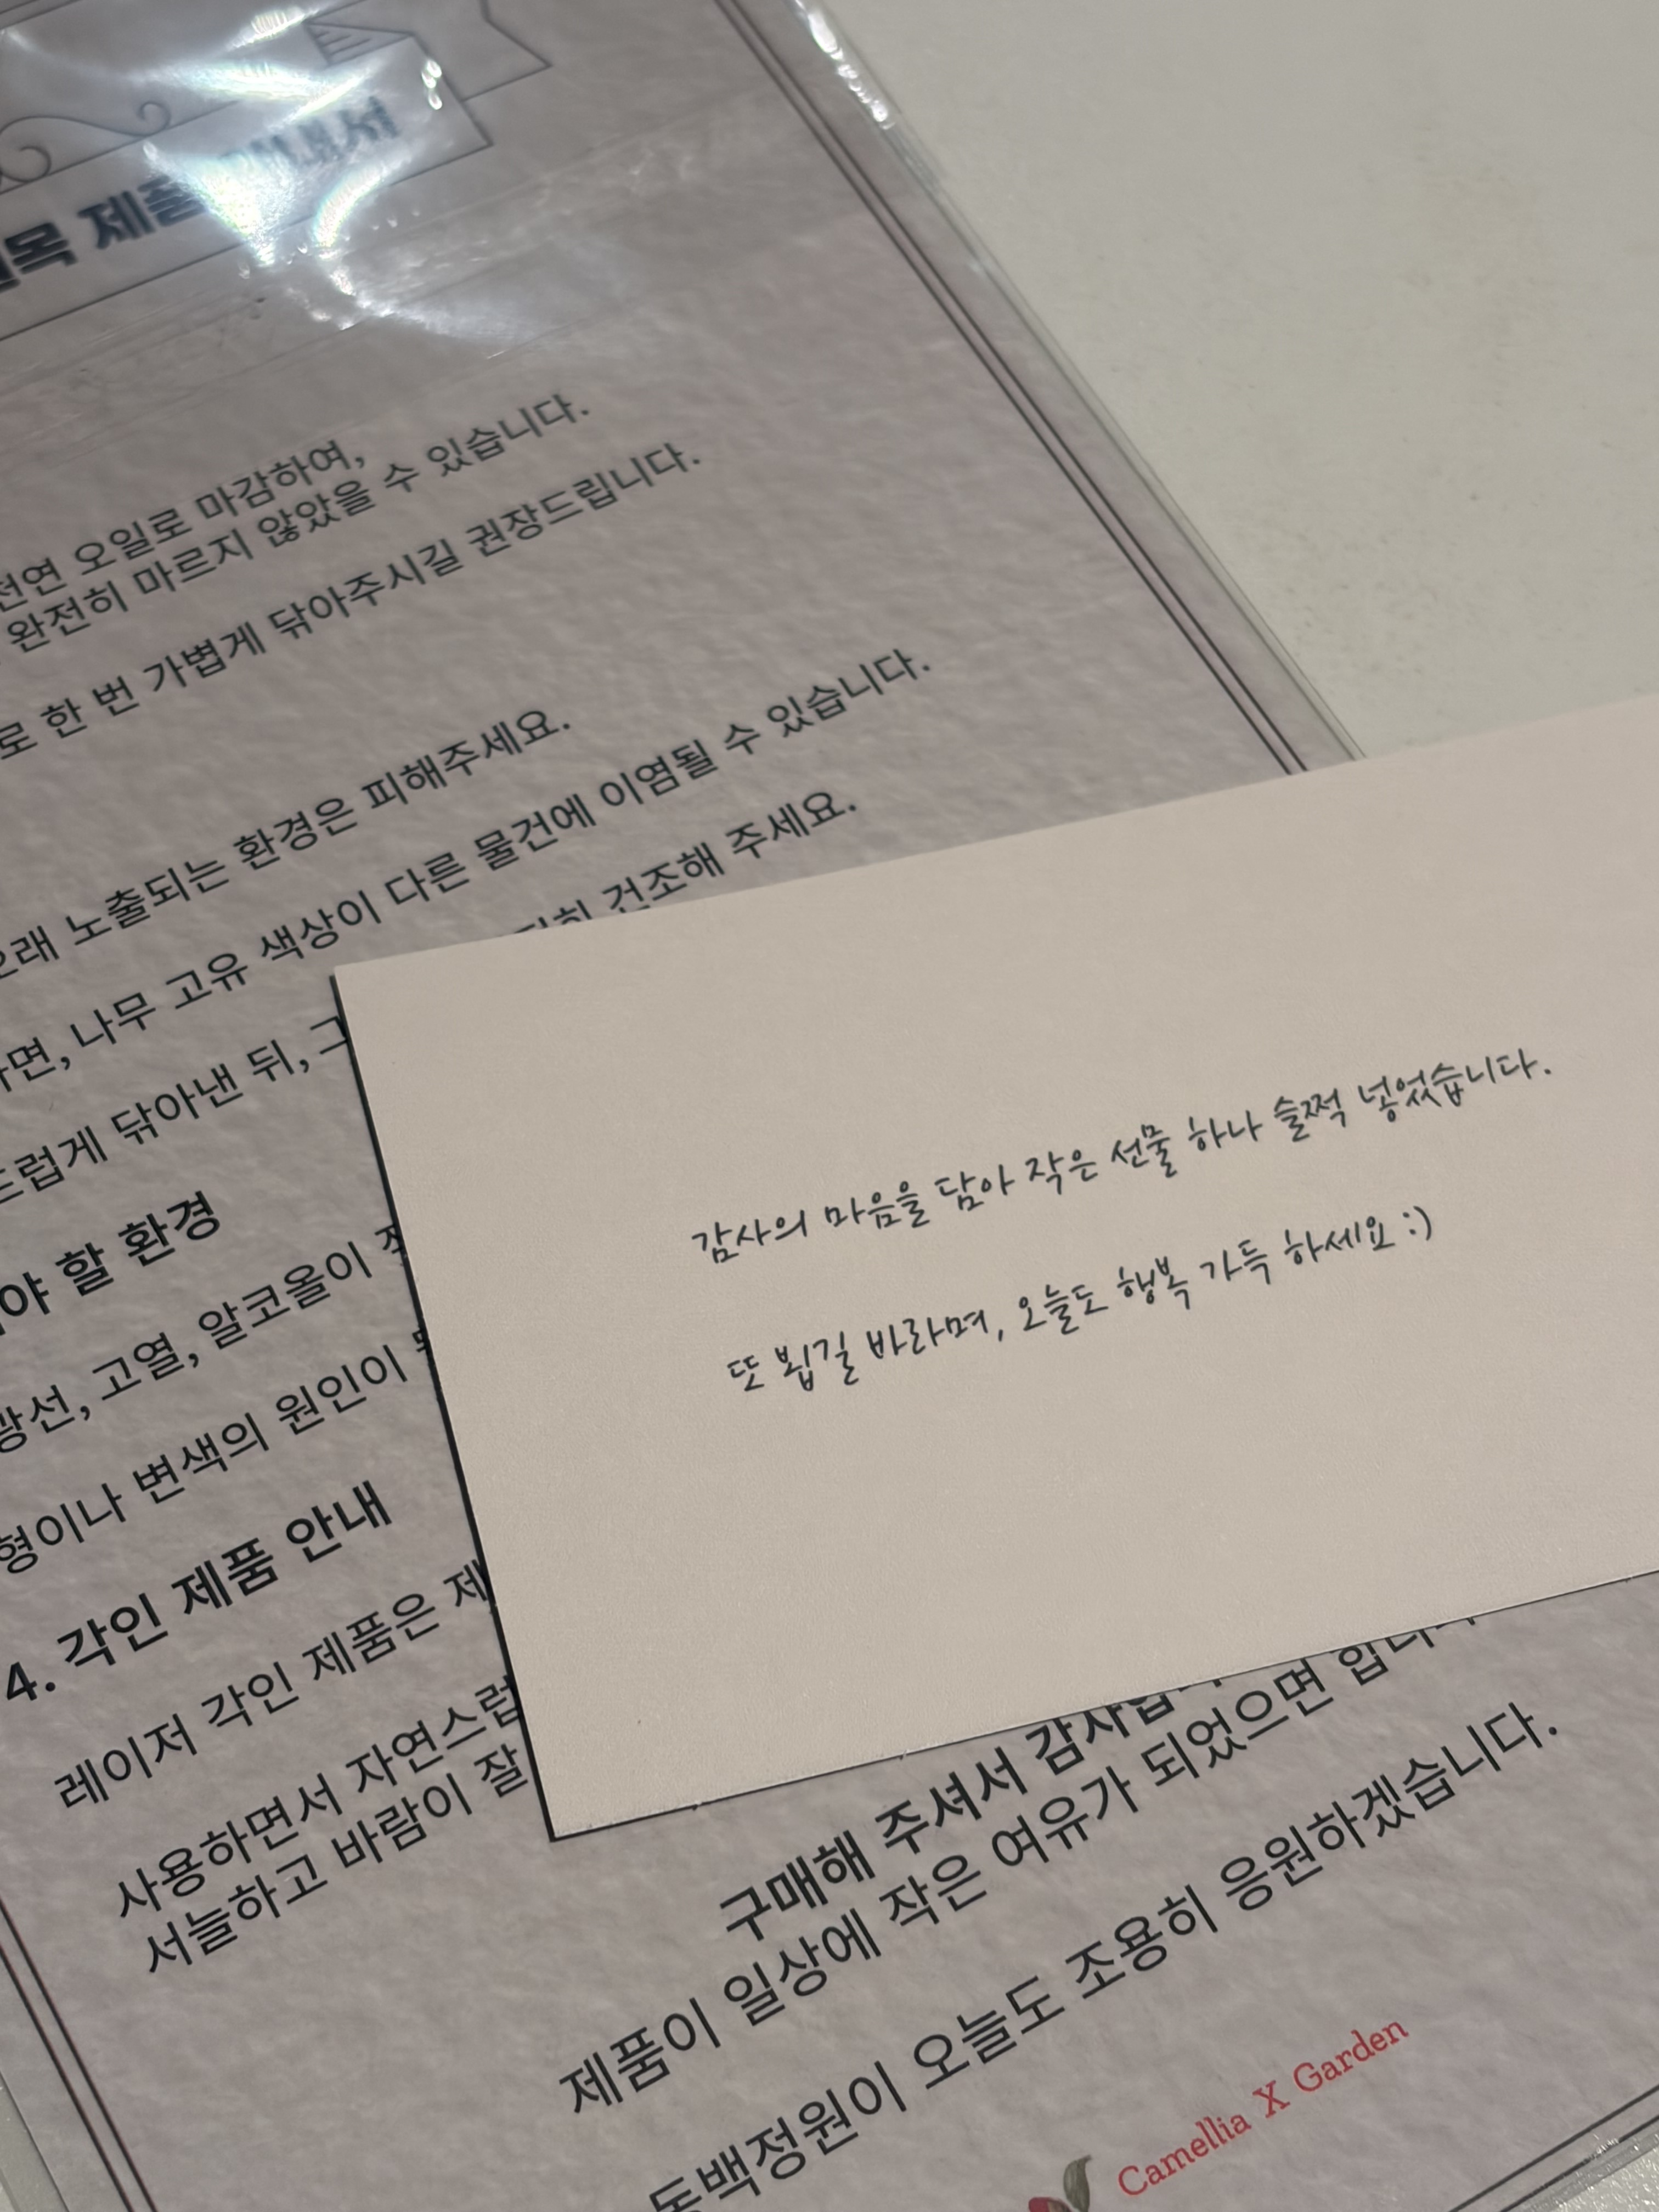 제품
천연 오일로 마감하여,
완전히 마르지 않았을 수 있습니다.
로 한 번 가볍게 닦아주시길 권장드립니다.
오래 노출되는 환경은 피해주세요.
면, 나무 고유 색상이 다른 물건에 이염될 수 있습니다.
드럽게 닦아낸 뒤, 그
건조해 주세요.
야 할 환경
광선, 고열, 알코올이
형이나 변색의 원인이
4. 각인 제품 안내
레이저 각인 제품은 제
사용하면서 자연스럽
서늘하고 바람이 잘
감사의 마음을 담아 작은 선물 하나 슬쩍 넣었습니다.
또 뵙길 바라며, 오늘도 행복 가득 하세요 :)
구매해 주셔서 감사합
제품이 일상에 작은 여유가 되었으면 합니다
동백정원이 오늘도 조용히 응원하겠습니다.
Camellia X Garden